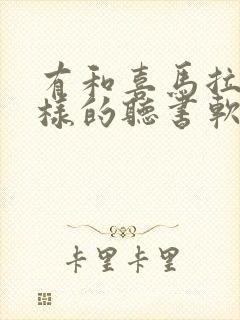 有和喜马拉
樣的聽書軟
卡里卡里